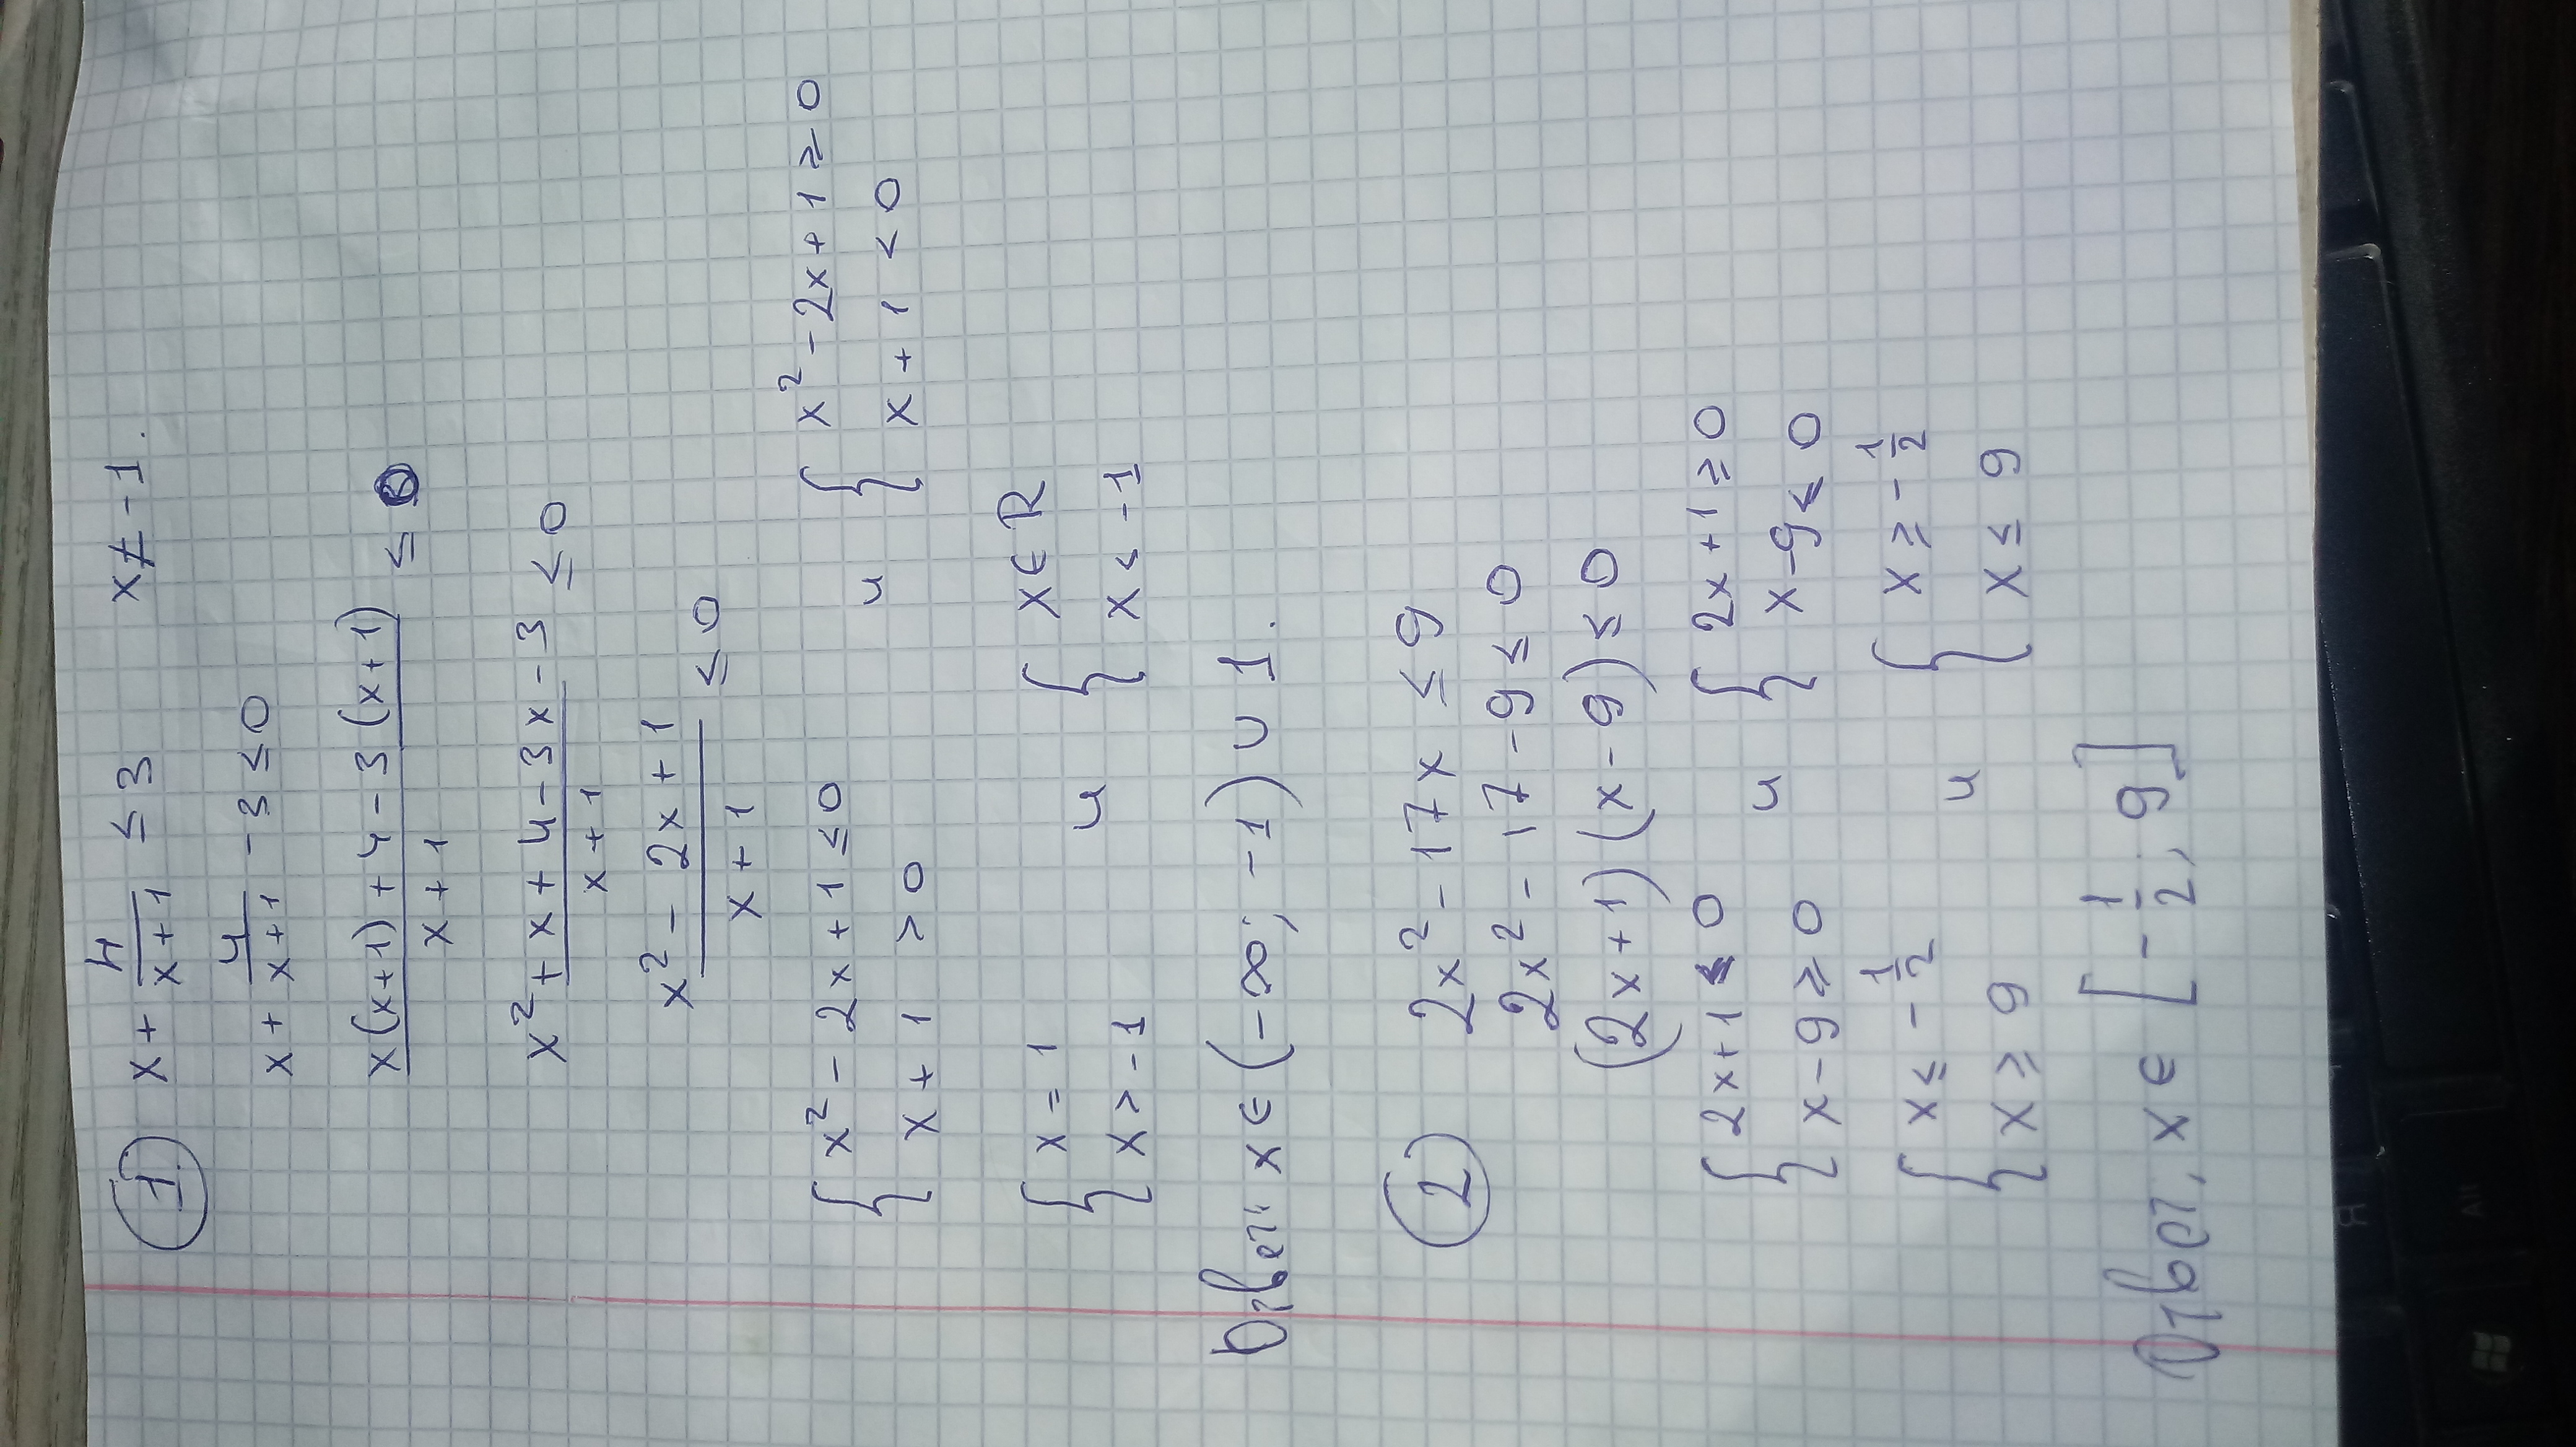 1. x + 4/(x+1) ≤ 3 x ≠ -1.
x + 4/(x+1) - 3 ≤ 0
(x(x+1) + 4 - 3(x+1))/(x+1) ≤ 0
(x² + x + 4 - 3x - 3)/(x+1) ≤ 0
(x² - 2x + 1)/(x+1) ≤ 0
{ x² - 2x + 1 ≤ 0 и { x² - 2x + 1 ≥ 0
x + 1 > 0 x + 1 < 0
{ x = 1 и { x ∈ R
x > -1 x < -1
Ответ: x ∈ (-∞; -1) ∪ 1.
2 2x² - 17x ≤ 9
2x² - 17 - 9 ≤ 0
(2x+1)(x-9) ≤ 0
{ 2x+1 ≤ 0 и { 2x+1 ≥ 0
x-9 ≥ 0 x-9 ≤ 0
{ x ≤ -1/2 и { x ≥ -1/2
x ≥ 9 x ≤ 9
Ответ, x ∈ [-1/2; 9]
Я
Alt